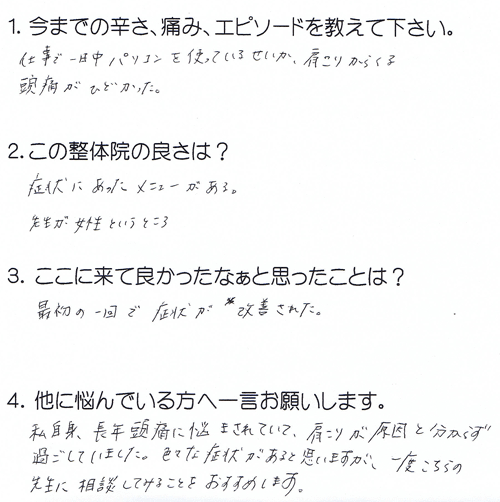 1. 今までの辛さ、痛み、エピソードを教えて下さい。
仕事で一日中パソコンを使っているせいか、肩こりからくる
頭痛がひどかった。
2. この整体院の良さは？
症状にあったメニューがある。
先生が女性というところ
3. ここに来て良かったなぁと思ったことは？
最初の一回で症状が改善された。
4. 他に悩んでいる方へ一言お願いします。
私自身、長年頭痛に悩まされていて、肩こりが原因と分からず
過ごしていました。色々な症状があると思いますが、一度こちらの
先生に相談してみることをおすすめします。